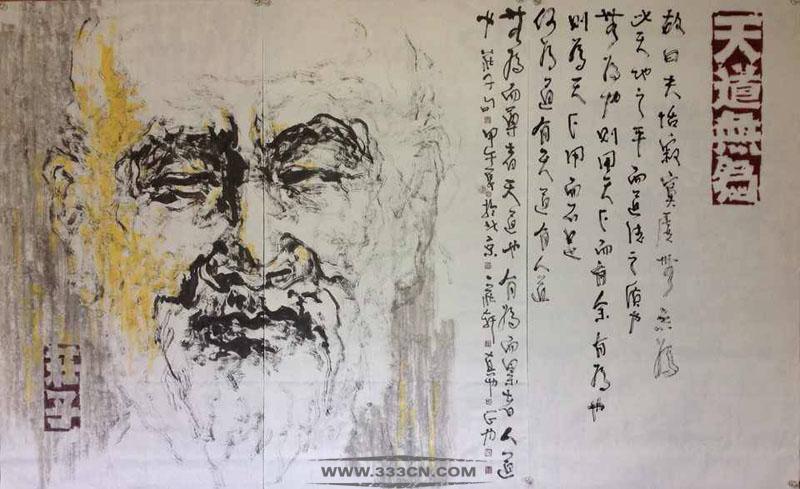 天道無為
故曰夫恬寂寞虛無無為
此天地之平而道德之質也
無為也則用天下而有余有為也
則為天下用而不足
何為道有天道有人道
無為而尊者天道也有為而累者人道
也 莊子句 甲午年於北京
莊子
WWW.333CN.COM